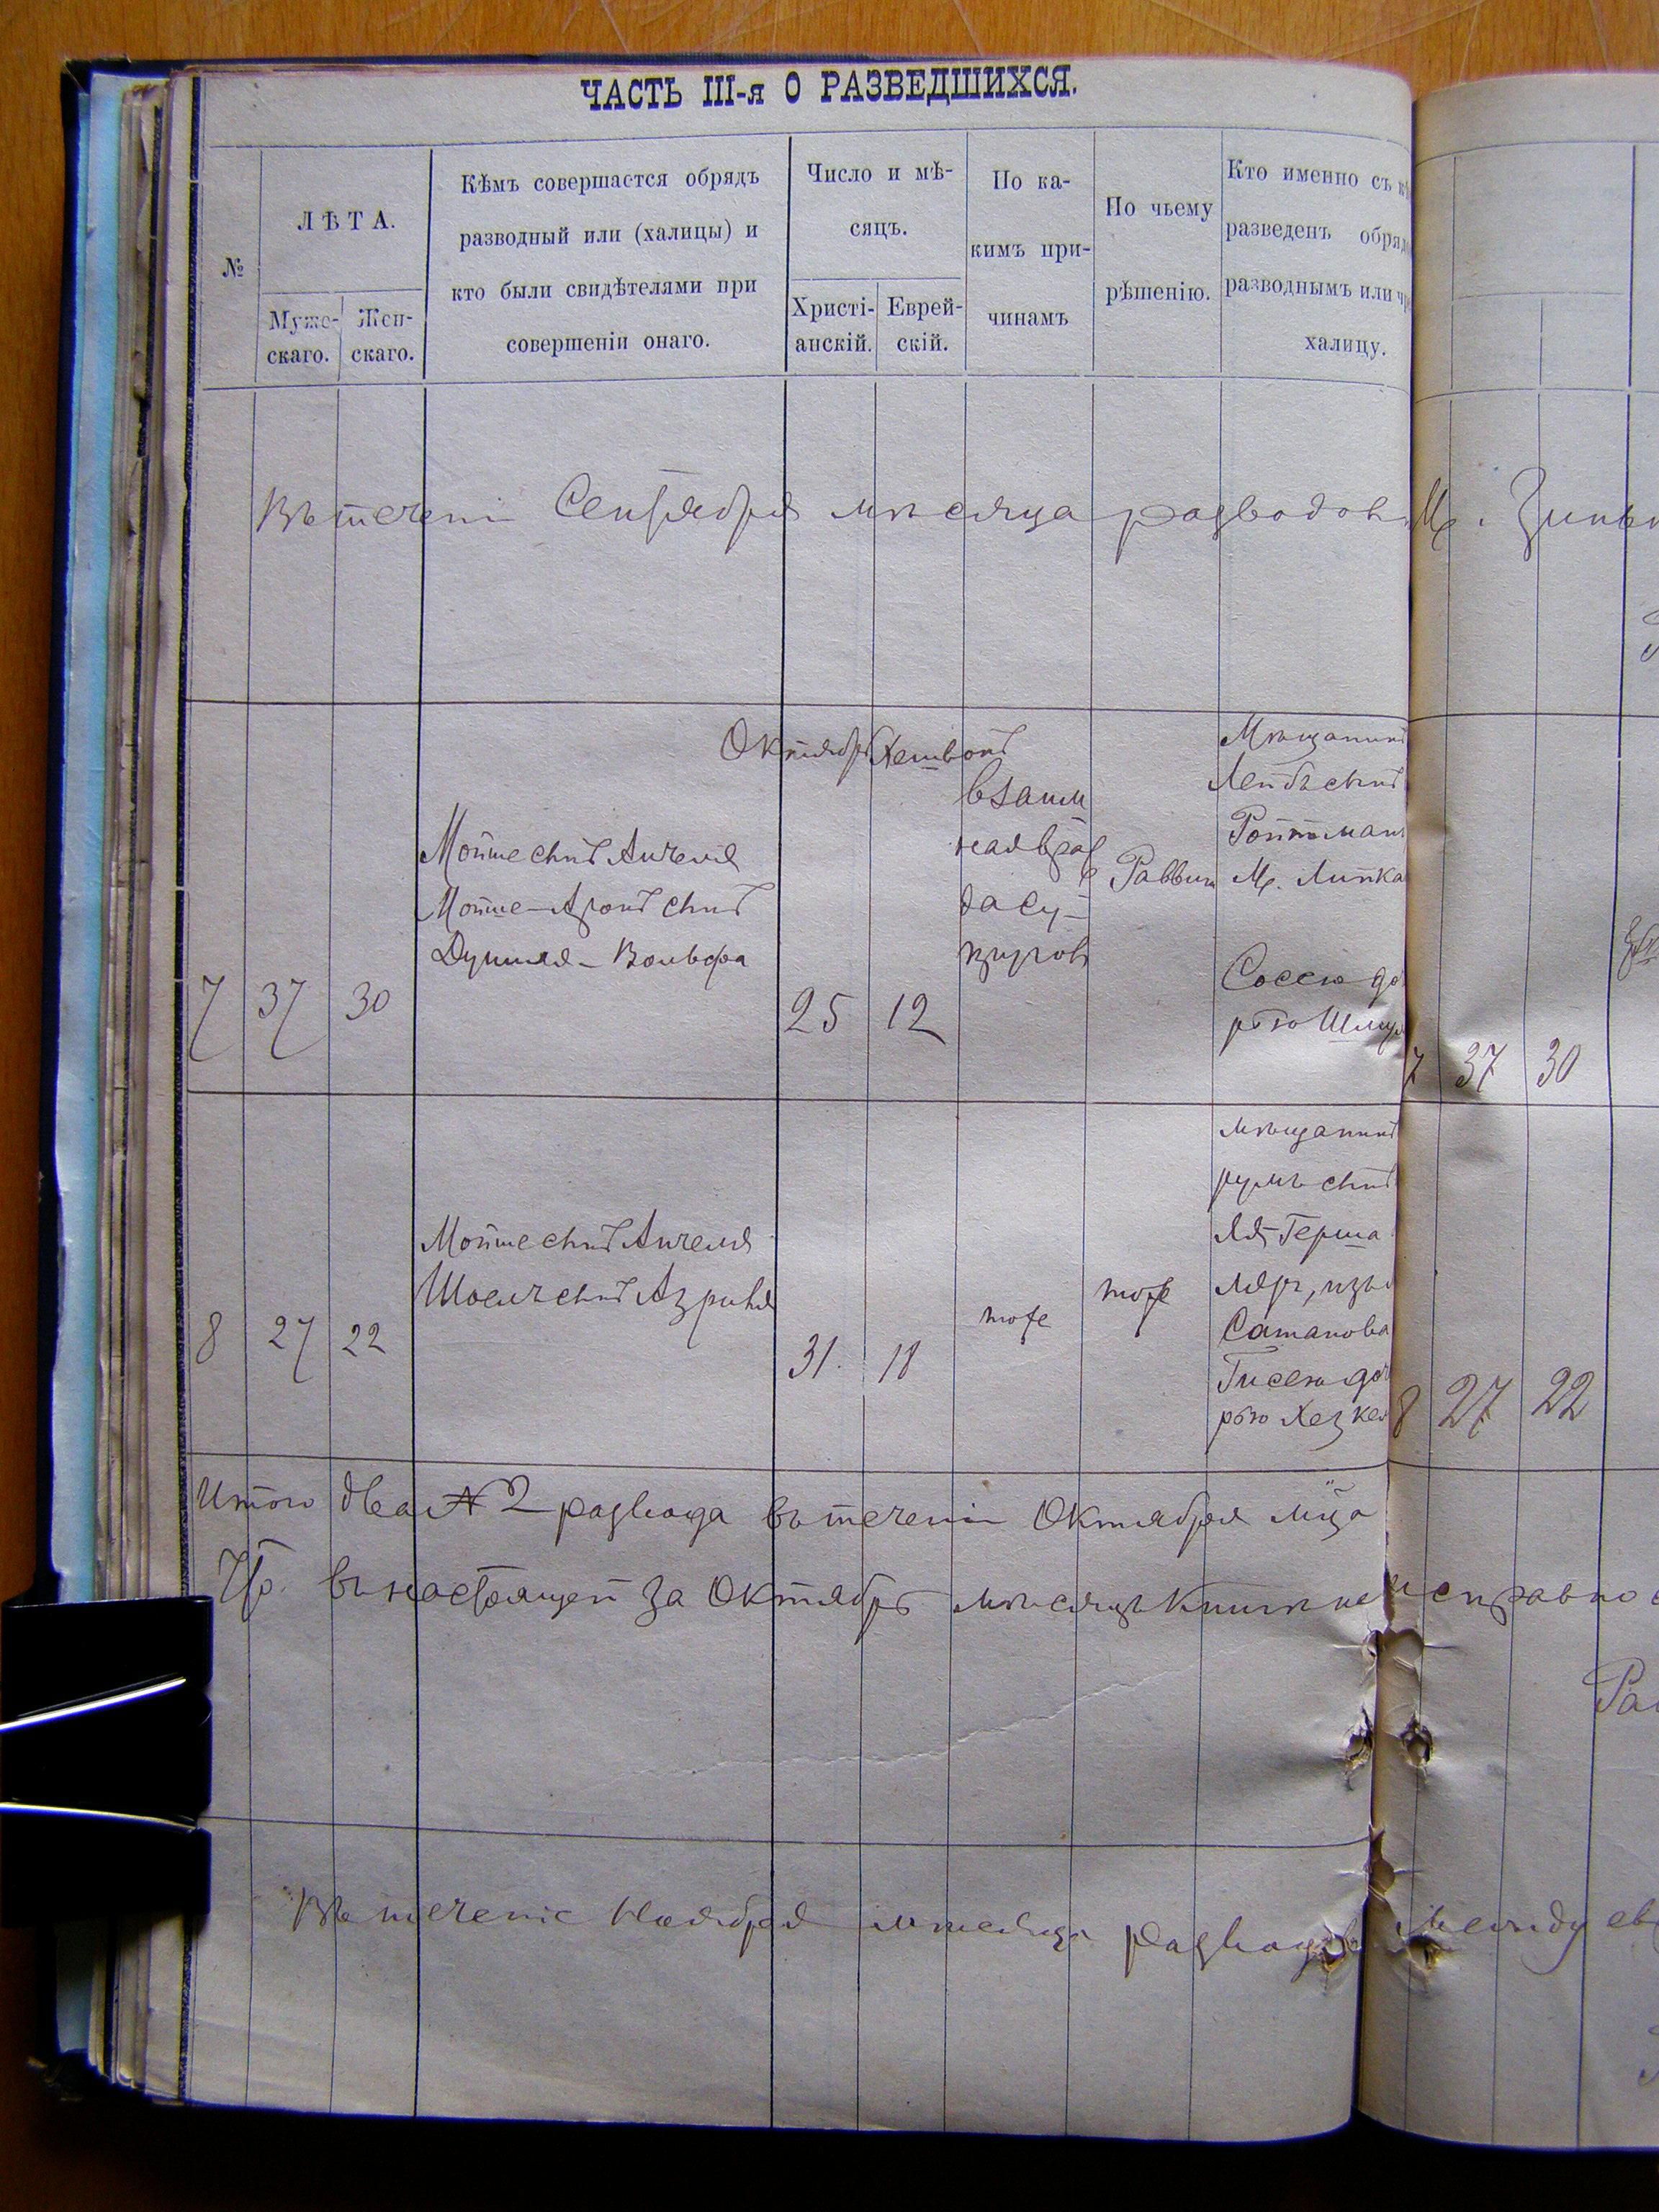 ЧАСТЬ III-я О РАЗВЕДШИХСЯ.
№
ЛѢТА.
Муже-
скаго.
Жен-
скаго.
Кѣмъ совершается обрядъ
разводный или (халицы) и
кто были свидѣтелями при
совершеніи онаго.
Число и мѣ-
сяцъ.
Христі-
анскій.
Еврей-
скій.
По ка-
кимъ при-
чинамъ
По чьему
рѣшенію.
Кто именно съ
разведенъ
разводнымъ или
халицу.
Въ теченіи Сентября мѣсяца разводовъ
Октябрь Хешвонъ
7 37 30
Мойше сынъ Анчеля
Мойше-Аронъ сынъ
Душиля-Вольфа
25 12
взаим
ная враж
да су-
пруговъ
Раввин
Мѣщанинъ
Лейбъ сынъ
Ройтман
М. Липка
Соссею до
рью Шмул
7 37 30
8 27 22
Мойше сынъ Анчеля
Шоелъ сынъ Азриля
31. 18
тоже
тоже
мѣщанинъ
сынъ
Герша
Сатанова
Гисею доч
рью Хезкел
8 27 22
Итого два № 2 развода въ теченіи Октября мца
Что въ настоящей за Октябрь мѣсяцъ книгѣ не исправно
Въ теченіе Ноября мѣсяца разводовъ между ев